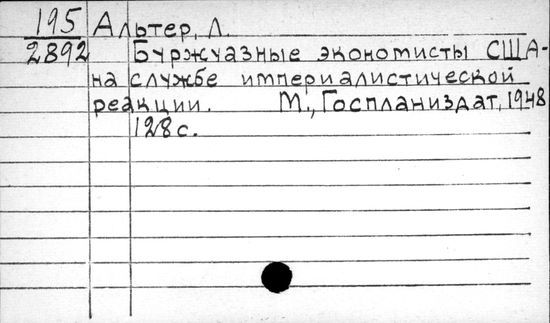 195 Альтер, Л.
2892 Буржуазные экономисты США-
на службе империалистической
реакции. М., Госпланиздат, 1948
128 с.